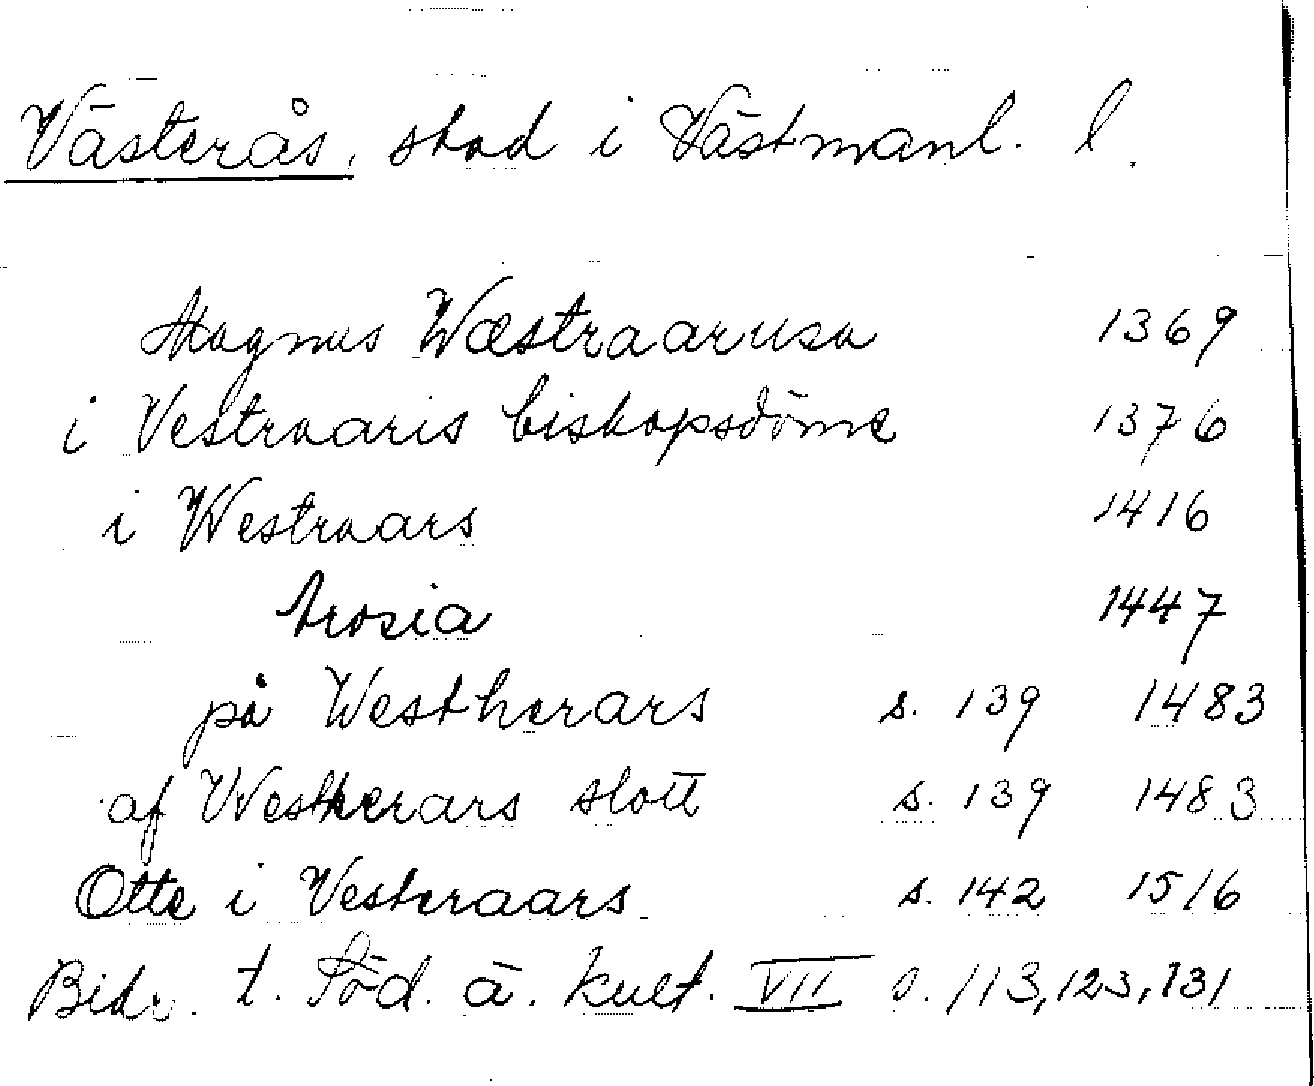 Västerås, stad i Västmanl. l.
Magnus Wæstraarusa 1369
i Vestraaris biskopsdöme 1376
i Westraars 1416
Arosia 1447
på Westherars s. 139 1483
af Westherars slott s. 139 1483
Otte i Vesteraars s. 142 1516
Bidr. t. Söd. ä. kult. VII s. 113, 123, 131